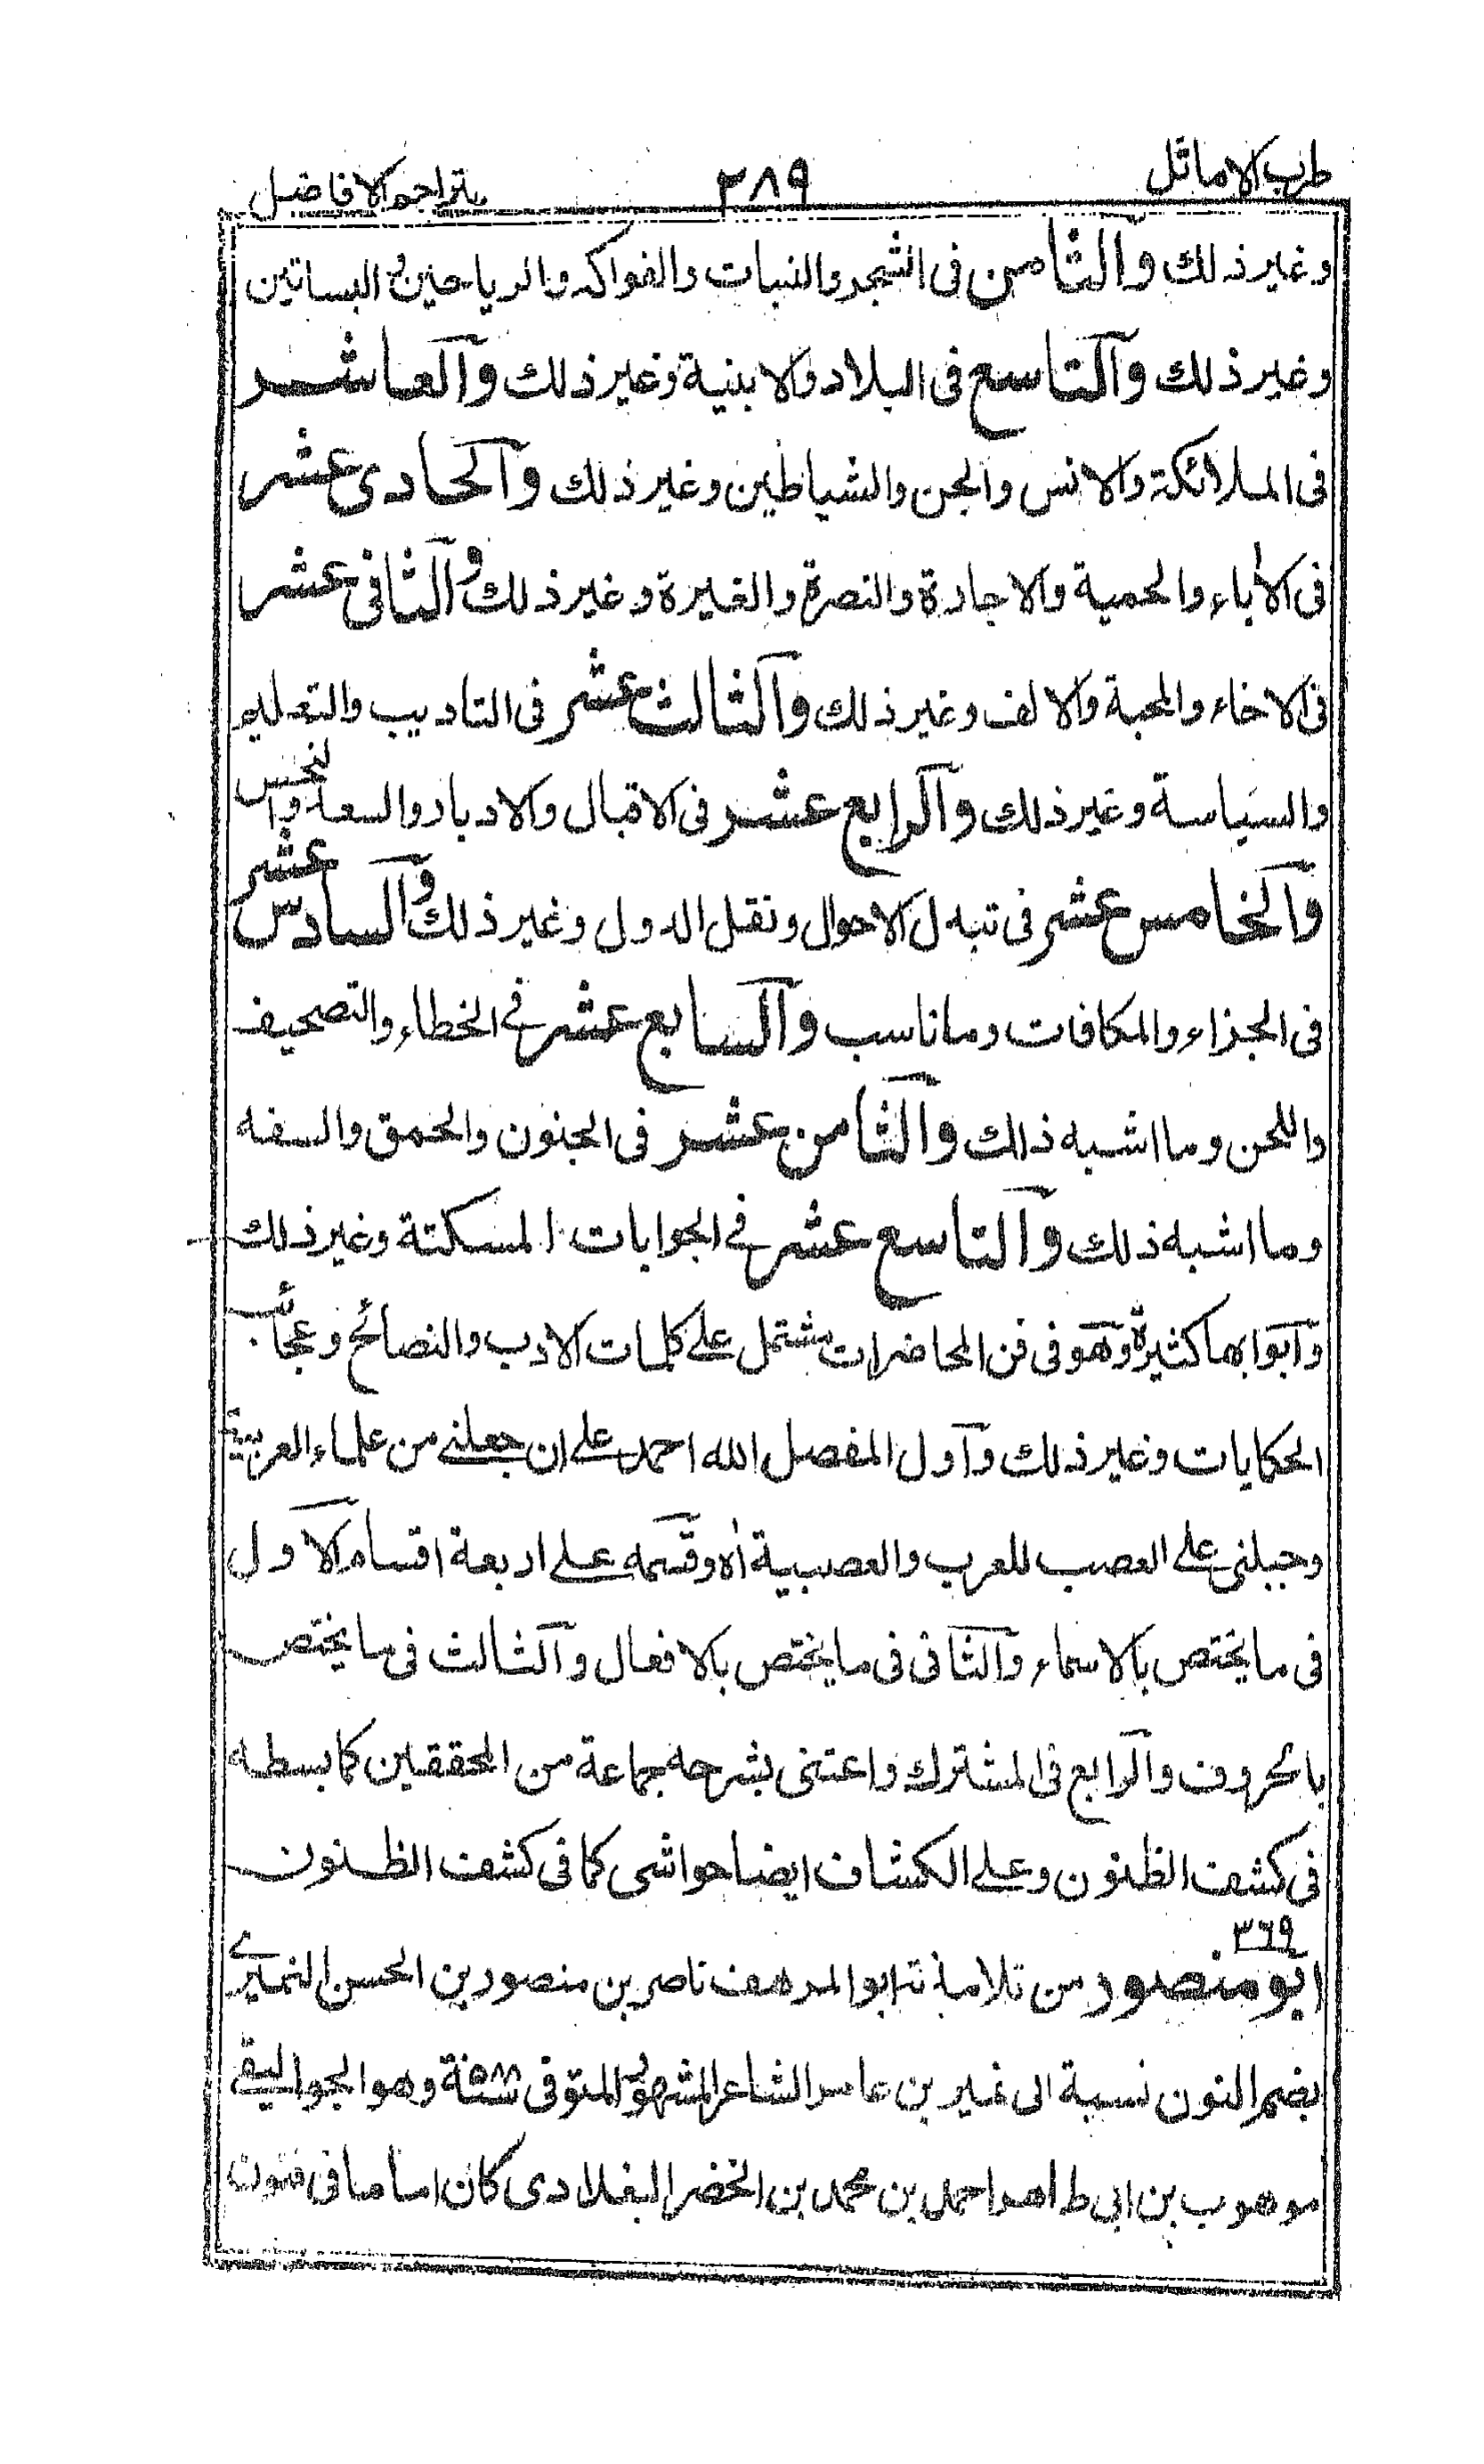 طرب الاماثل ٢٨٩ بتراجم الافاضل
وغير ذلك والثامن فى الشجر والنبات والفواكه والرياحين و البساتين
وغير ذلك وآلتاسع فى البلاد والابنية وغير ذلك وآلعاشر
فى الملائكة والانس والجن والشياطين وغير ذلك وآلحادى عشر
فى الاباء والحمية والاجادة والنصرة والغيرة وغير ذلك وآلثانى عشر
فى الاخاء والمحبة والالف وغير ذلك وآلثالث عشر فى التاديب والتعليم
والسياسة وغير ذلك وآلرابع عشر فى الاقبال والادبار والسعد والنحس
وآلخامس عشر فى تبدل الاحوال ونقل الدول وغير ذلك وآلسادس عشر
فى الجزاء والمكافات وما ناسب وآلسابع عشر فے الخطاء والتصحيف
واللحن وما اشبه ذلك وآلثامن عشر فى الجنون والحمق والسفه
وما اشبه ذلك وآلتاسع عشر فے الجوابات المسكتة وغير ذلك
وآبوابها كثيرة وهو فى فن المحاضرات مشتمل علے كلمات الادب والنصائح وعجائب
الحكايات وغير ذلك وآول المفصل الله احمد علے ان جعلنے من علماء العربية
وجبلنى علے العصب للعرب والعصبية اه وقسمه علے اربعة اقسام آلاول
فى ما يختص بالاسماء وآلثانى فى ما يختص بالافعال وآلثالث فى ما يختص
بالحروف وآلرابع فى المشترك واعتنى بشرحه جماعة من المحققين كما بسطه
فى كشف الظنون وعلے الكشاف ايضا حواشى كما فى كشف الظنون
٣٦٩
ابو منصور من تلامذته ابو المرهف ناصر بن منصور بن الحسن النميرے
بضم النون نسبة الى نمير بن عامر الشاعر المشهور المتوفى سنة ٥٨٨ وهو الجواليقے
موهوب بن ابى طاهر احمد بن محمد بن الخضر البغدادى كان اماما فى فنون